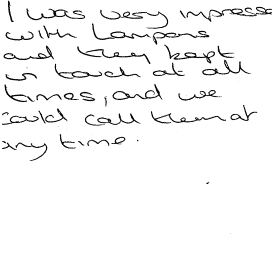 I was very impresse
with Lampons
and they kept
in touch at all
times, and we
could call them at
any time.